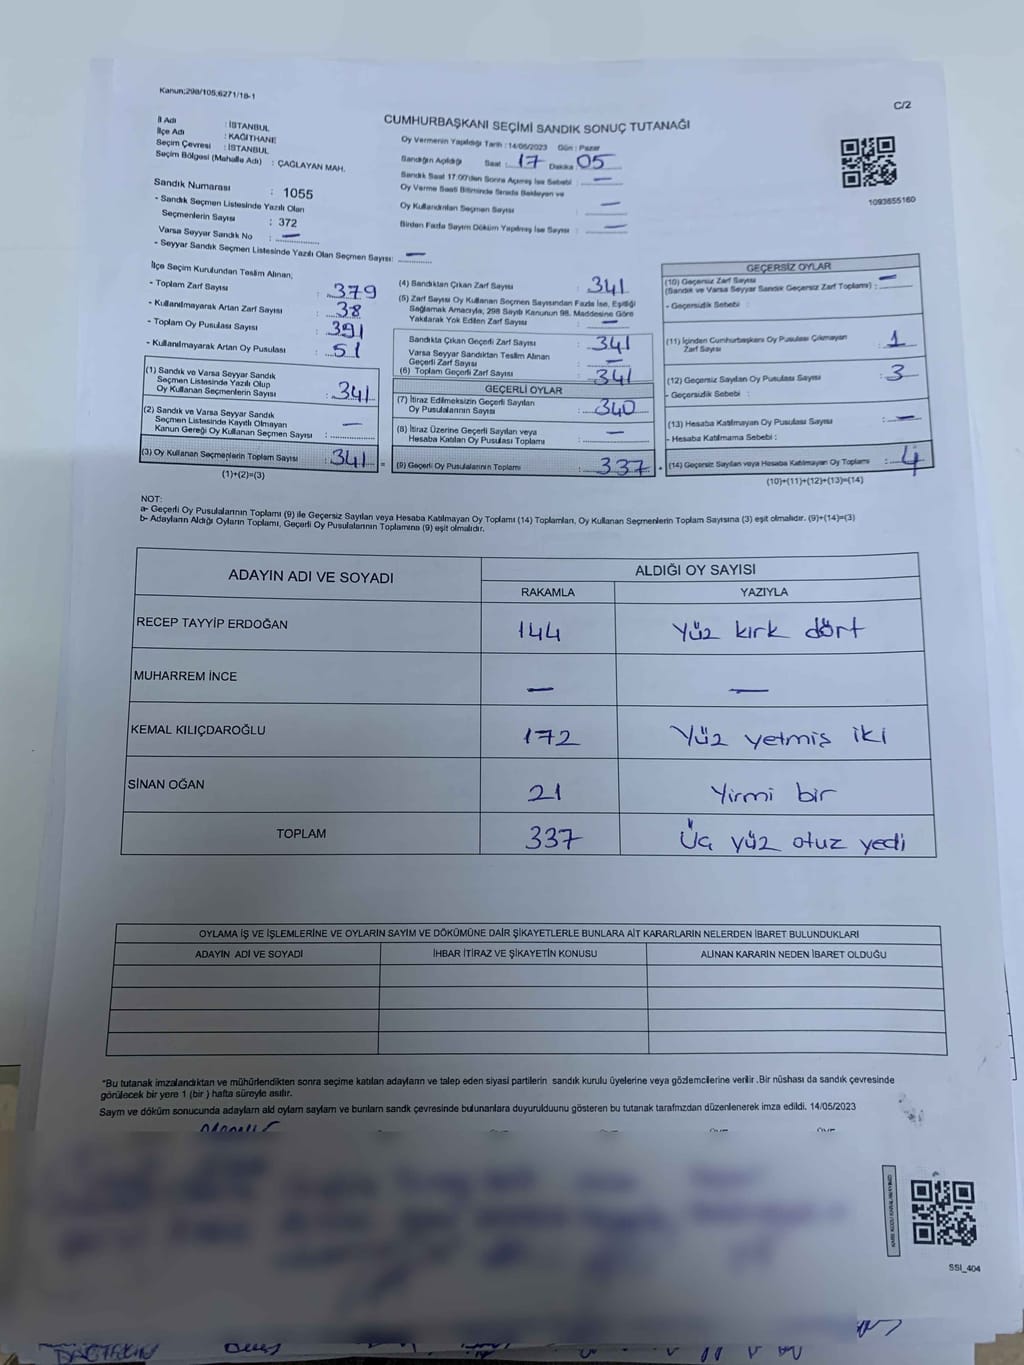 Kanun;298/105;6271/18-1
C/2
İl Adı : İSTANBUL
İlçe Adı : KAĞITHANE
Seçim Çevresi : İSTANBUL
Seçim Bölgesi (Mahalle Adı) : ÇAĞLAYAN MAH.
CUMHURBAŞKANI SEÇİMİ SANDIK SONUÇ TUTANAĞI
Oy Vermenin Yapıldığı Tarih : 14/05/2023 Gün : Pazar
Sandığın Açıldığı Saat : 17 Dakika 05
Sandık Saat 17:00'den Sonra Açılmış İse Sebebi : —
Oy Verme Saati Bitiminde Sırada Bekleyen ve
Oy Kullandırılan Seçmen Sayısı : —
Birden Fazla Sayım Döküm Yapılmış İse Sayısı : —
1093655160
Sandık Numarası : 1055
- Sandık Seçmen Listesinde Yazılı Olan
Seçmenlerin Sayısı : 372
Varsa Seyyar Sandık No : —
- Seyyar Sandık Seçmen Listesinde Yazılı Olan Seçmen Sayısı: —
İlçe Seçim Kurulundan Teslim Alınan;
- Toplam Zarf Sayısı : 379
- Kullanılmayarak Artan Zarf Sayısı : 38
- Toplam Oy Pusulası Sayısı : 391
- Kullanılmayarak Artan Oy Pusulası : 51
(1) Sandık ve Varsa Seyyar Sandık
Seçmen Listesinde Yazılı Olup
Oy Kullanan Seçmenlerin Sayısı : 341
(2) Sandık ve Varsa Seyyar Sandık
Seçmen Listesinde Kayıtlı Olmayan
Kanun Gereği Oy Kullanan Seçmen Sayısı :
(3) Oy Kullanan Seçmenlerin Toplam Sayısı : 341 =
(1)+(2)=(3)
(4) Sandıktan Çıkan Zarf Sayısı : 341
(5) Zarf Sayısı Oy Kullanan Seçmen Sayısından Fazla İse, Eşitliği
Sağlamak Amacıyla, 298 Sayılı Kanunun 98. Maddesine Göre
Yakılarak Yok Edilen Zarf Sayısı : —
Sandıkta Çıkan Geçerli Zarf Sayısı : 341
Varsa Seyyar Sandıktan Teslim Alınan
Geçerli Zarf Sayısı : —
(6) Toplam Geçerli Zarf Sayısı : 341
GEÇERLİ OYLAR
(7) İtiraz Edilmeksizin Geçerli Sayılan
Oy Pusulalarının Sayısı : 340
(8) İtiraz Üzerine Geçerli Sayılan veya
Hesaba Katılan Oy Pusulası Toplamı : —
(9) Geçerli Oy Pusulalarının Toplamı : 337
GEÇERSİZ OYLAR
(10) Geçersiz Zarf Sayısı
(Sandık ve Varsa Seyyar Sandık Geçersiz Zarf Toplamı) : —
- Geçersizlik Sebebi :
(11) İçinden Cumhurbaşkanı Oy Pusulası Çıkmayan
Zarf Sayısı : 1
(12) Geçersiz Sayılan Oy Pusulası Sayısı : 3
- Geçersizlik Sebebi :
(13) Hesaba Katılmayan Oy Pusulası Sayısı : —
- Hesaba Katılmama Sebebi :
(14) Geçersiz Sayılan veya Hesaba Katılmayan Oy Toplamı : 4
(10)+(11)+(12)+(13)=(14)
NOT:
a- Geçerli Oy Pusulalarının Toplamı (9) ile Geçersiz Sayılan veya Hesaba Katılmayan Oy Toplamı (14) Toplamları, Oy Kullanan Seçmenlerin Toplam Sayısına (3) eşit olmalıdır. (9)+(14)=(3)
b- Adayların Aldığı Oyların Toplamı, Geçerli Oy Pusulalarının Toplamına (9) eşit olmalıdır.
ADAYIN ADI VE SOYADI ALDIĞI OY SAYISI
RAKAMLA YAZIYLA
RECEP TAYYİP ERDOĞAN 144 Yüz kırk dört
MUHARREM İNCE — —
KEMAL KILIÇDAROĞLU 172 Yüz yetmiş iki
SİNAN OĞAN 21 Yirmi bir
TOPLAM 337 Üç yüz otuz yedi
OYLAMA İŞ VE İŞLEMLERİNE VE OYLARIN SAYIM VE DÖKÜMÜNE DAİR ŞİKAYETLERLE BUNLARA AİT KARARLARIN NELERDEN İBARET BULUNDUKLARI
ADAYIN ADI VE SOYADI İHBAR İTİRAZ VE ŞİKAYETİN KONUSU ALINAN KARARIN NEDEN İBARET OLDUĞU
*Bu tutanak imzalandıktan ve mühürlendikten sonra seçime katılan adayların ve talep eden siyasi partilerin sandık kurulu üyelerine veya gözlemcilerine verilir .Bir nüshası da sandık çevresinde
görülecek bir yere 1 (bir ) hafta süreyle asılır.
Sayım ve döküm sonucunda adayların ald oylarn sayıları ve bunların sandk çevresinde bulunanlara duyurulduunu gösteren bu tutanak tarafmzdan düzenlenerek imza edildi. 14/05/2023
SSI_404